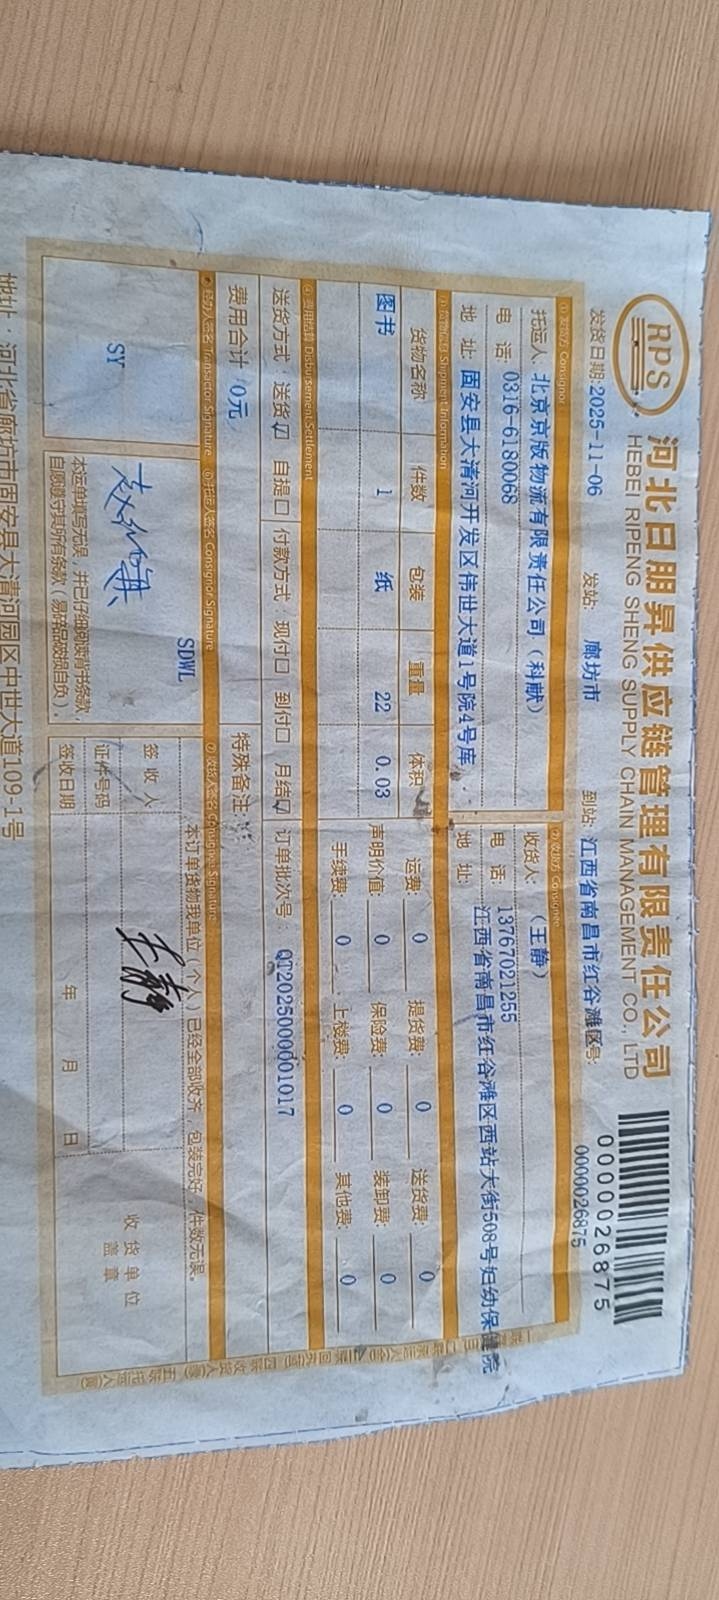 RPS
河北日朋昇供应链管理有限责任公司
HEBEI RIPENG SHENG SUPPLY CHAIN MANAGEMENT CO., LTD
0000026875
0000026875
发货日期:2025-11-06 发站: 廊坊市 到站: 江西省南昌市红谷滩区号:
①发货方 Consignor ②收货方 Consignee
托运人: 北京京版物流有限责任公司（科献） 收货人: （王静）
电 话: 0316-6180068 电 话: 13767021255
地 址: 固安县大清河开发区伟世大道1号院4号库 地 址: 江西省南昌市红谷滩区西站大街508号妇幼保健院
③货物信息 Shipment Information
货物名称 件数 包装 重量 体积 运费: 0 提货费: 0 送货费: 0
图书 1 纸 22 0.03 声明价值: 0 保险费: 0 装卸费: 0
手续费: 0 上楼费: 0 其他费: 0
④费用结算 Disbursement Settlement
送货方式: 送货☑ 自提□ 付款方式: 现付□ 到付□ 月结☑ 订单批次号: QT2025000001017
费用合计: 0元 特殊备注:
经办人签名 Transactor Signature ⑥托运人签名 Consignor Signature ⑦收货人签名 Consignee Signature
SY
SDWL
本运单填写无误，并已仔细阅读背书条款，
自愿遵守其所有条款（易碎品破损自负）。
本订单货物我单位（个人）已经全部收齐，包装完好，件数无误。
签 收 人 王静
证件号码
签收日期 年 月 日
收货单位
盖章
地址：河北省廊坊市固安县大清河园区中世大道109-1号